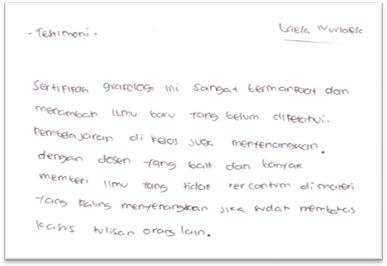 - Testimoni -
Laela Nurlaela
Sertifikasi grafologi ini sangat bermanfaat dan
menambah ilmu baru yang belum diketahui.
Pembelajaran di kelas juga menyenangkan.
dengan dosen yang baik dan banyak
memberi ilmu yang tidak tercantum di materi
yang paling menyenangkan jika sudah membahas
kasus tulisan orang lain.